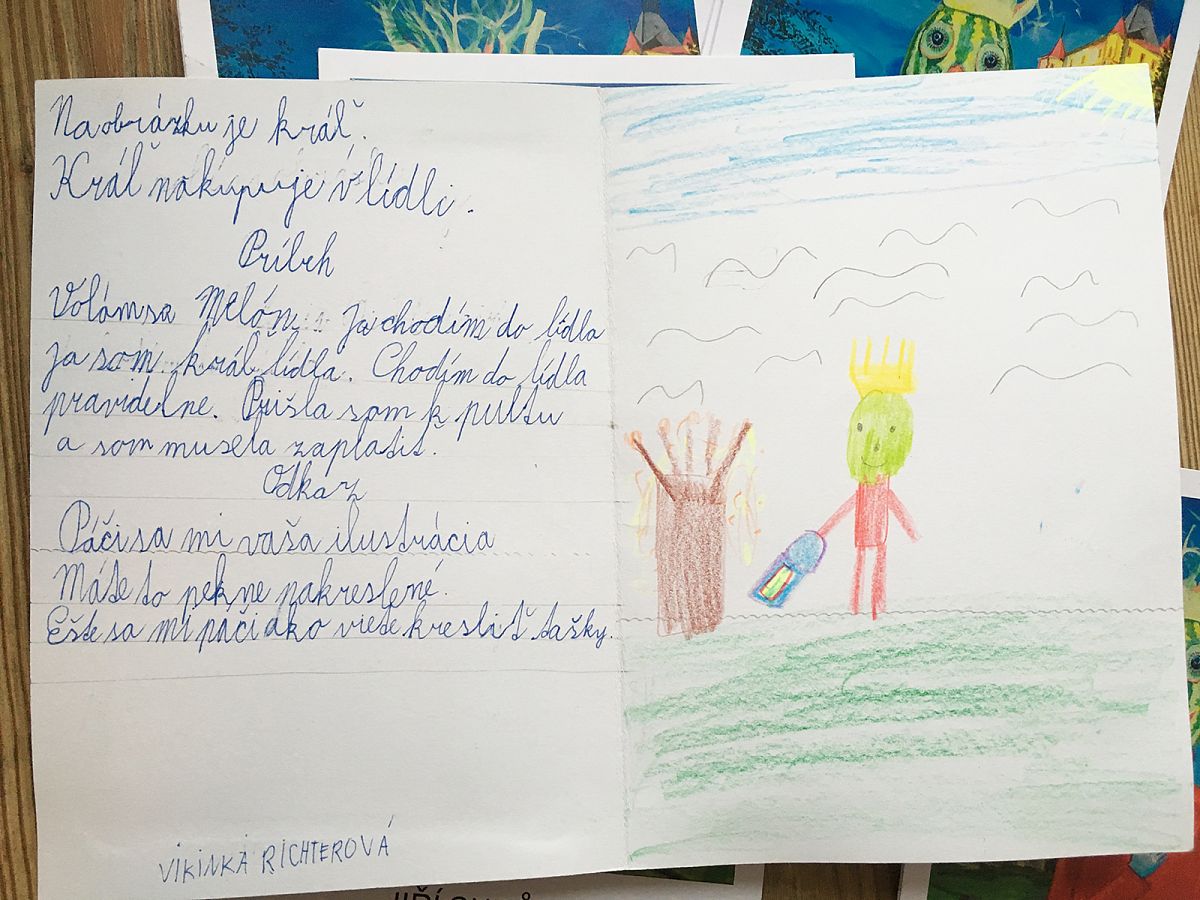 Na obrázku je kráľ.
Kráľ nakupuje v lídli.
Príbeh
Volám sa Melón. Ja chodím do lídla
ja som kráľ lídla. Chodím do lídla
pravidelne. Prišla som k pultu
a som musela zaplatit.
Odkaz
Páči sa mi vaša ilustrácia
Máte to pekne nakreslené.
Ešte sa mi páči ako viete kresliť tašky.
VIKINKA RICHTEROVÁ